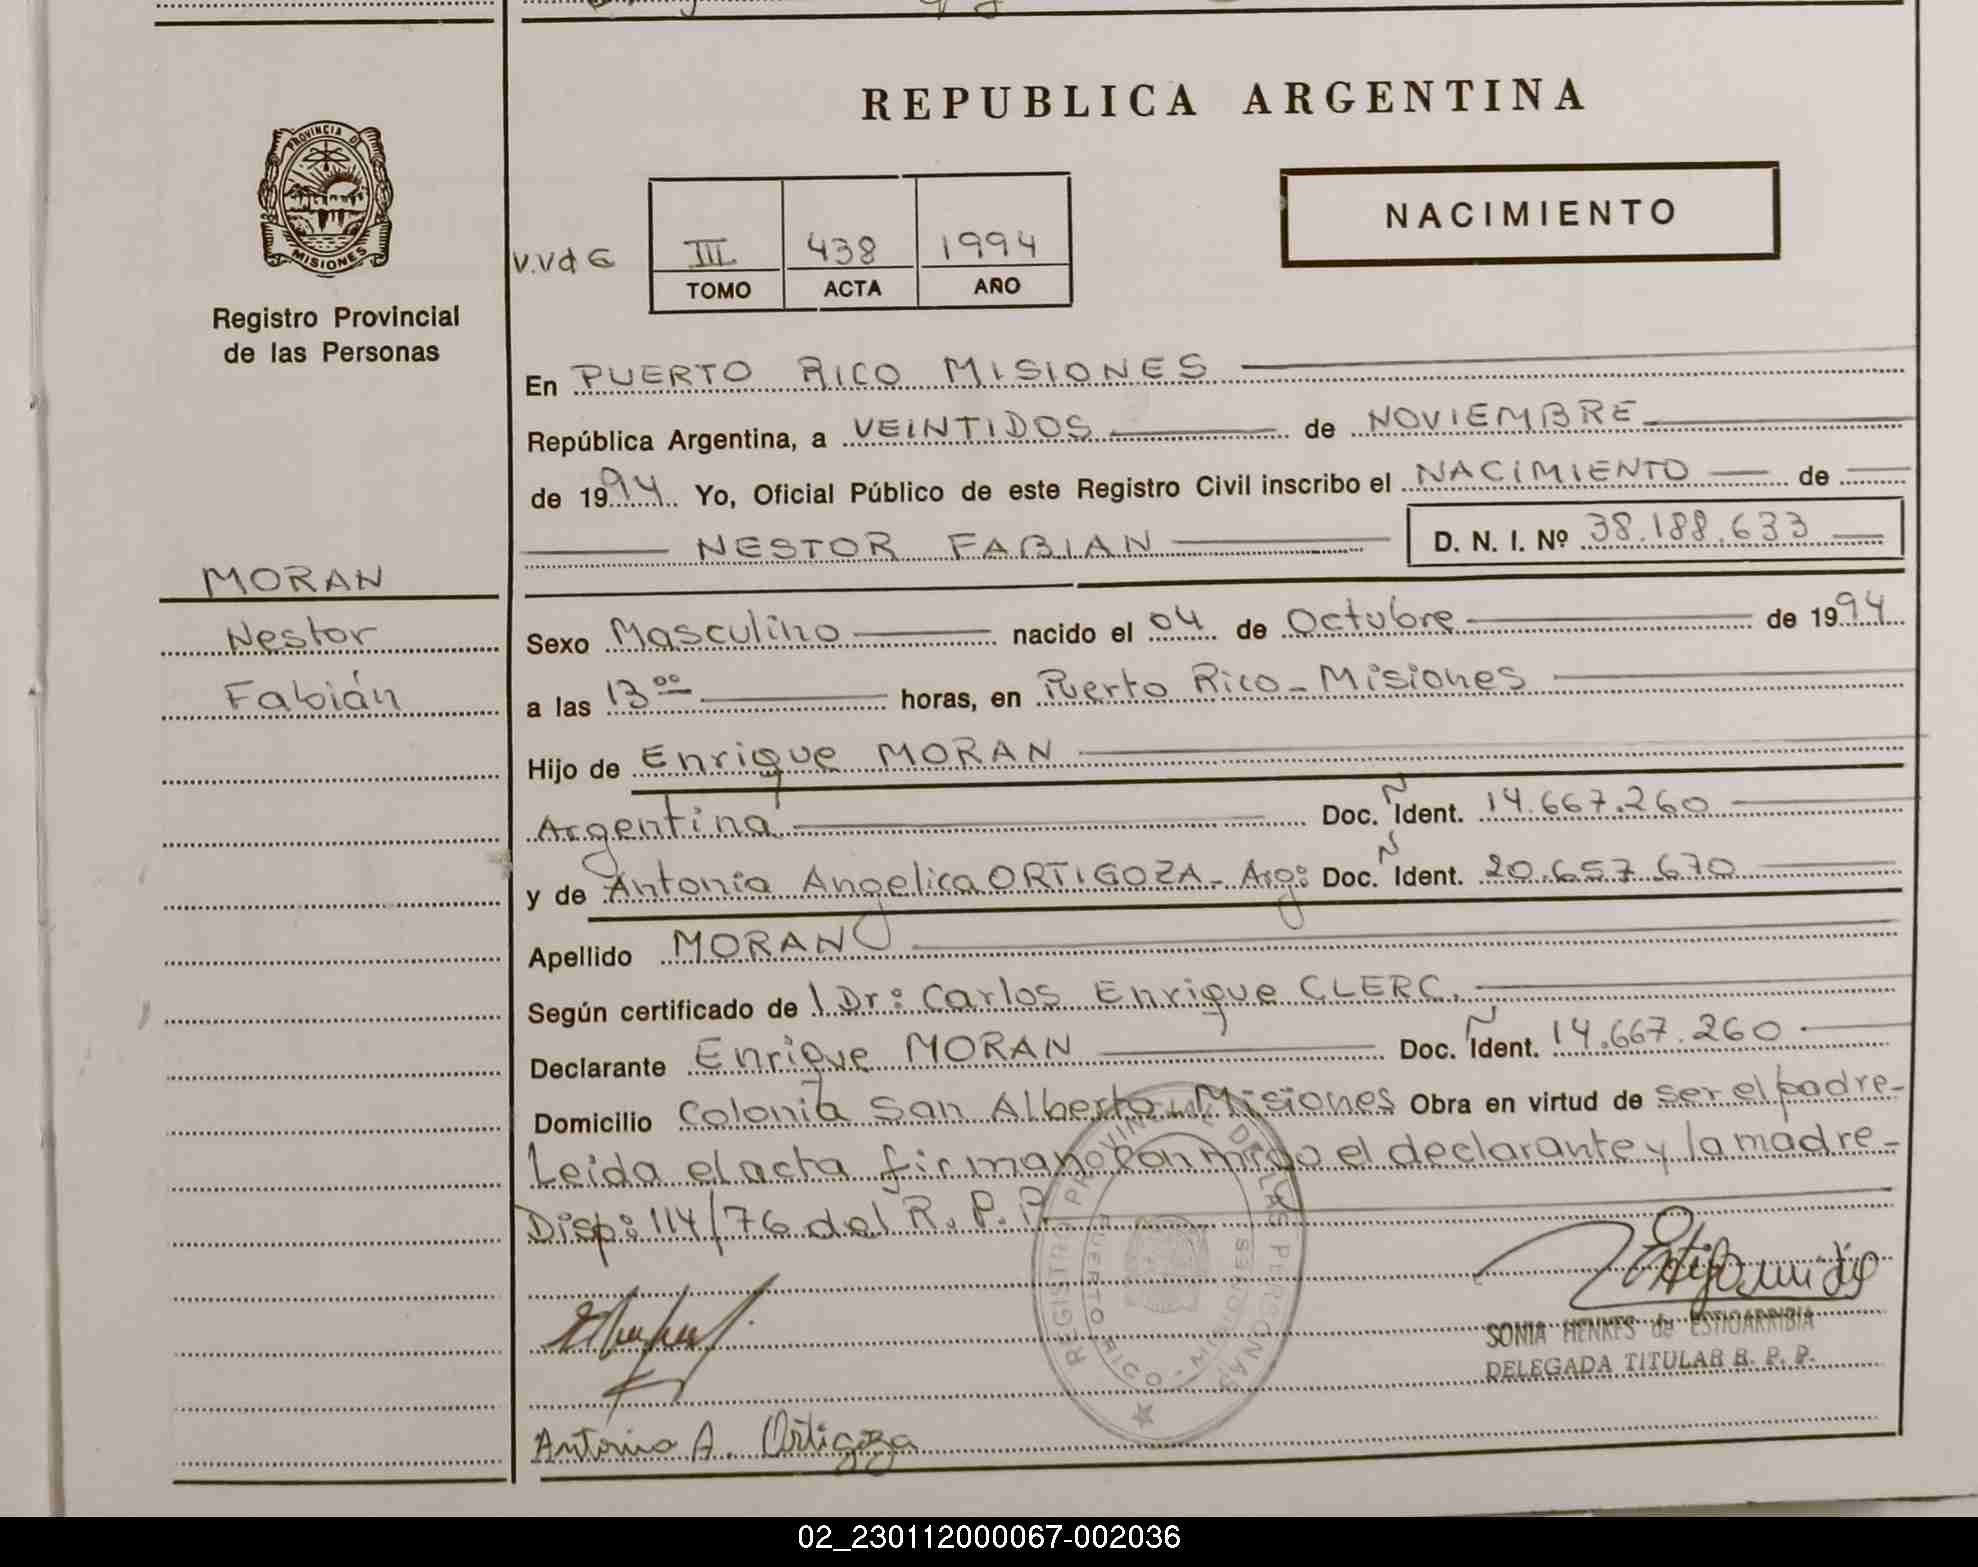 REPUBLICA ARGENTINA
PROVINCIA DE
MISIONES
Registro Provincial
de las Personas
NACIMIENTO
V.Vd G
III 438 1994
TOMO ACTA AÑO
En PUERTO RICO MISIONES
República Argentina, a VEINTIDOS de NOVIEMBRE
de 1994 Yo, Oficial Público de este Registro Civil inscribo el NACIMIENTO de
NESTOR FABIAN D. N. I. Nº 38.188.633
MORAN
Nestor
Fabián
Sexo Masculino nacido el 04 de Octubre de 1994
a las 13 00 horas, en Puerto Rico - Misiones
Hijo de Enrique MORAN
Argentina Doc. Ñ Ident. 14.667.260
y de Antonia Angelica ORTIGOZA - Arg: Doc. Ñ Ident. 20.657.670
Apellido MORAN
Según certificado de l Dr: Carlos Enrique CLERC.
Declarante Enrique MORAN Doc. Ñ Ident. 14.667.260
Domicilio Colonia San Alberto - Misiones Obra en virtud de ser el padre -
Leida el acta firman con migo el declarante y la madre -
Disp: 114/76 del R. P. P.
REGISTRO PROVINCIAL DE LAS PERSONAS
PUERTO RICO - MISIONES
SONIA HENKES de ESTIGARRIBIA
DELEGADA TITULAR R. P. P.
Antonia A. Ortigoza
02_230112000067-002036